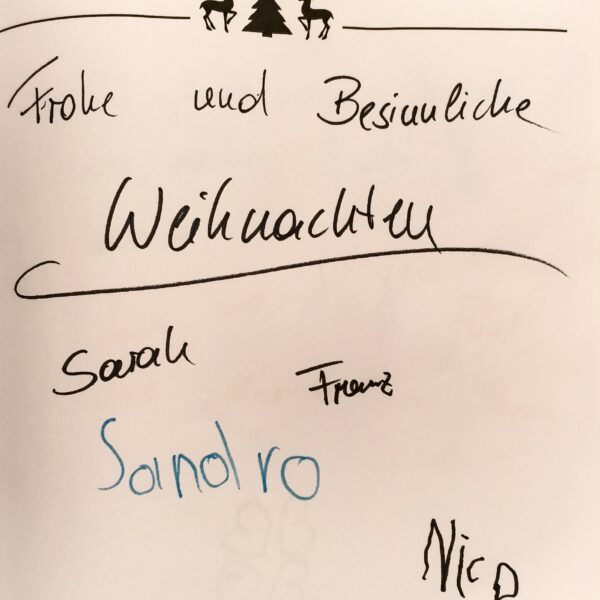 Frohe und Besinnliche
Weihnachten
Sarah
Franz
Sandro
Nico